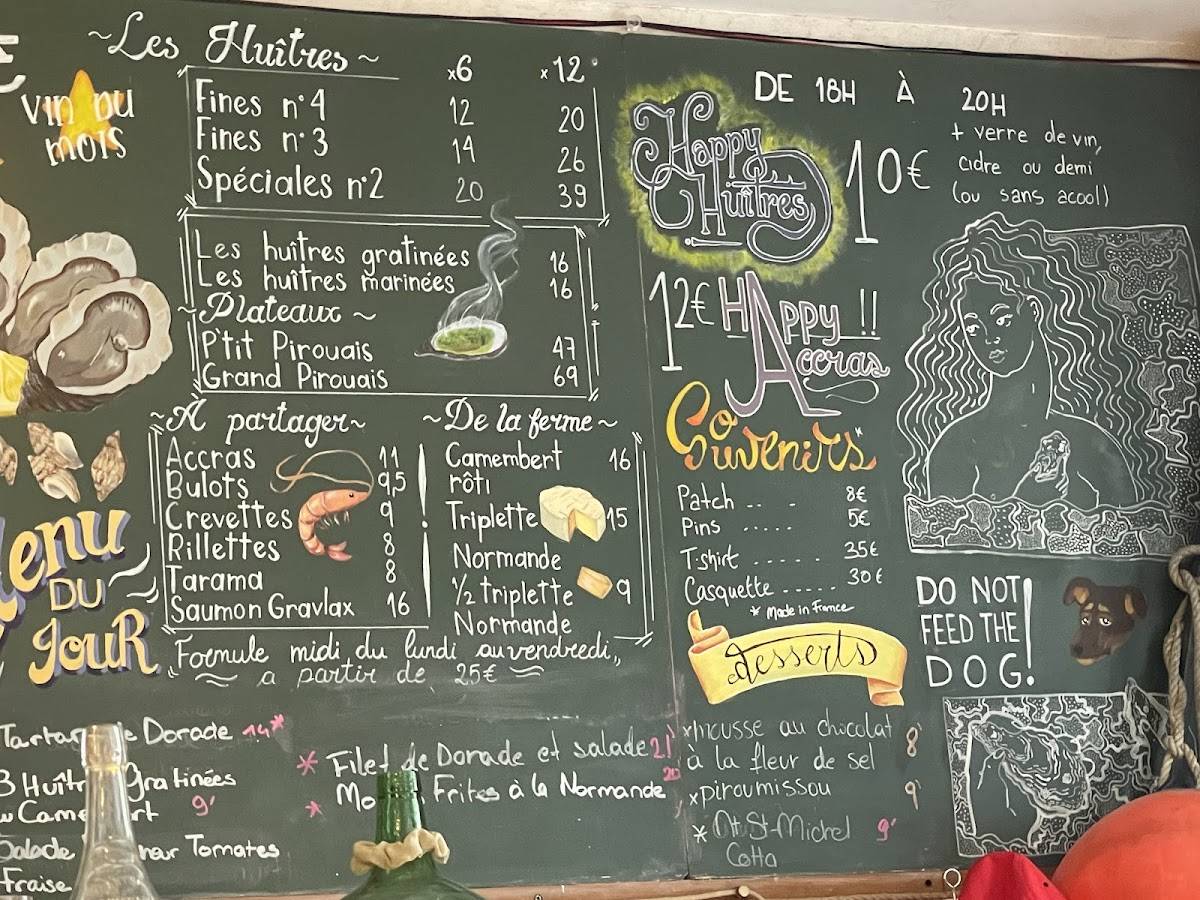 ~Les Huîtres~ x6 x12
Fines n°4 12 20
Fines n°3 14 26
Spéciales n°2 20 39
Les huîtres gratinées 16
Les huîtres marinées 16
~Plateaux~
P'tit Pirouais 47
Grand Pirouais 69
VIN DU
MOIS
~A partager~
Accras 11
Bulots 9,5
Crevettes 9
Rillettes 8
Tarama 8
Saumon Gravlax 16
~De la ferme~
Camembert 16
rôti
Triplette 15
Normande
1/2 triplette 9
Normande
Formule midi du lundi au vendredi,,
a partir de 25€
Menu
DU
JouR
Dorade 14*
3 Huîtr Gratinées
9'
Tomates
Fraise
* Filet de Dorade et salade 21'
* Frites à la Normande 20
DE 18H À 20H
Happy
Huîtres
10€
+ verre de vin,
cidre ou demi
(ou sans acool)
12€ HAppy !!
Accras
Souvenirs*
Patch .. . 8€
Pins . 5€
T-shirt ..... 35€
Casquette ..... 30€
* Made in France
desserts
x mousse au chocolat 8'
à la fleur de sel
x piroumissou 9'
* Mt St-Michel 9'
Cotta
DO NOT
FEED THE
DOG!